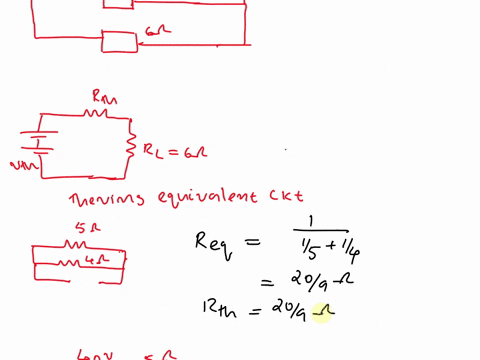 6Ω
Rth
Vth
RL = 6Ω
Thevins equivalent ckt
5Ω
4Ω
Req = 1 / (1/5 + 1/4)
= 20/9 Ω
Rth = 20/9 Ω